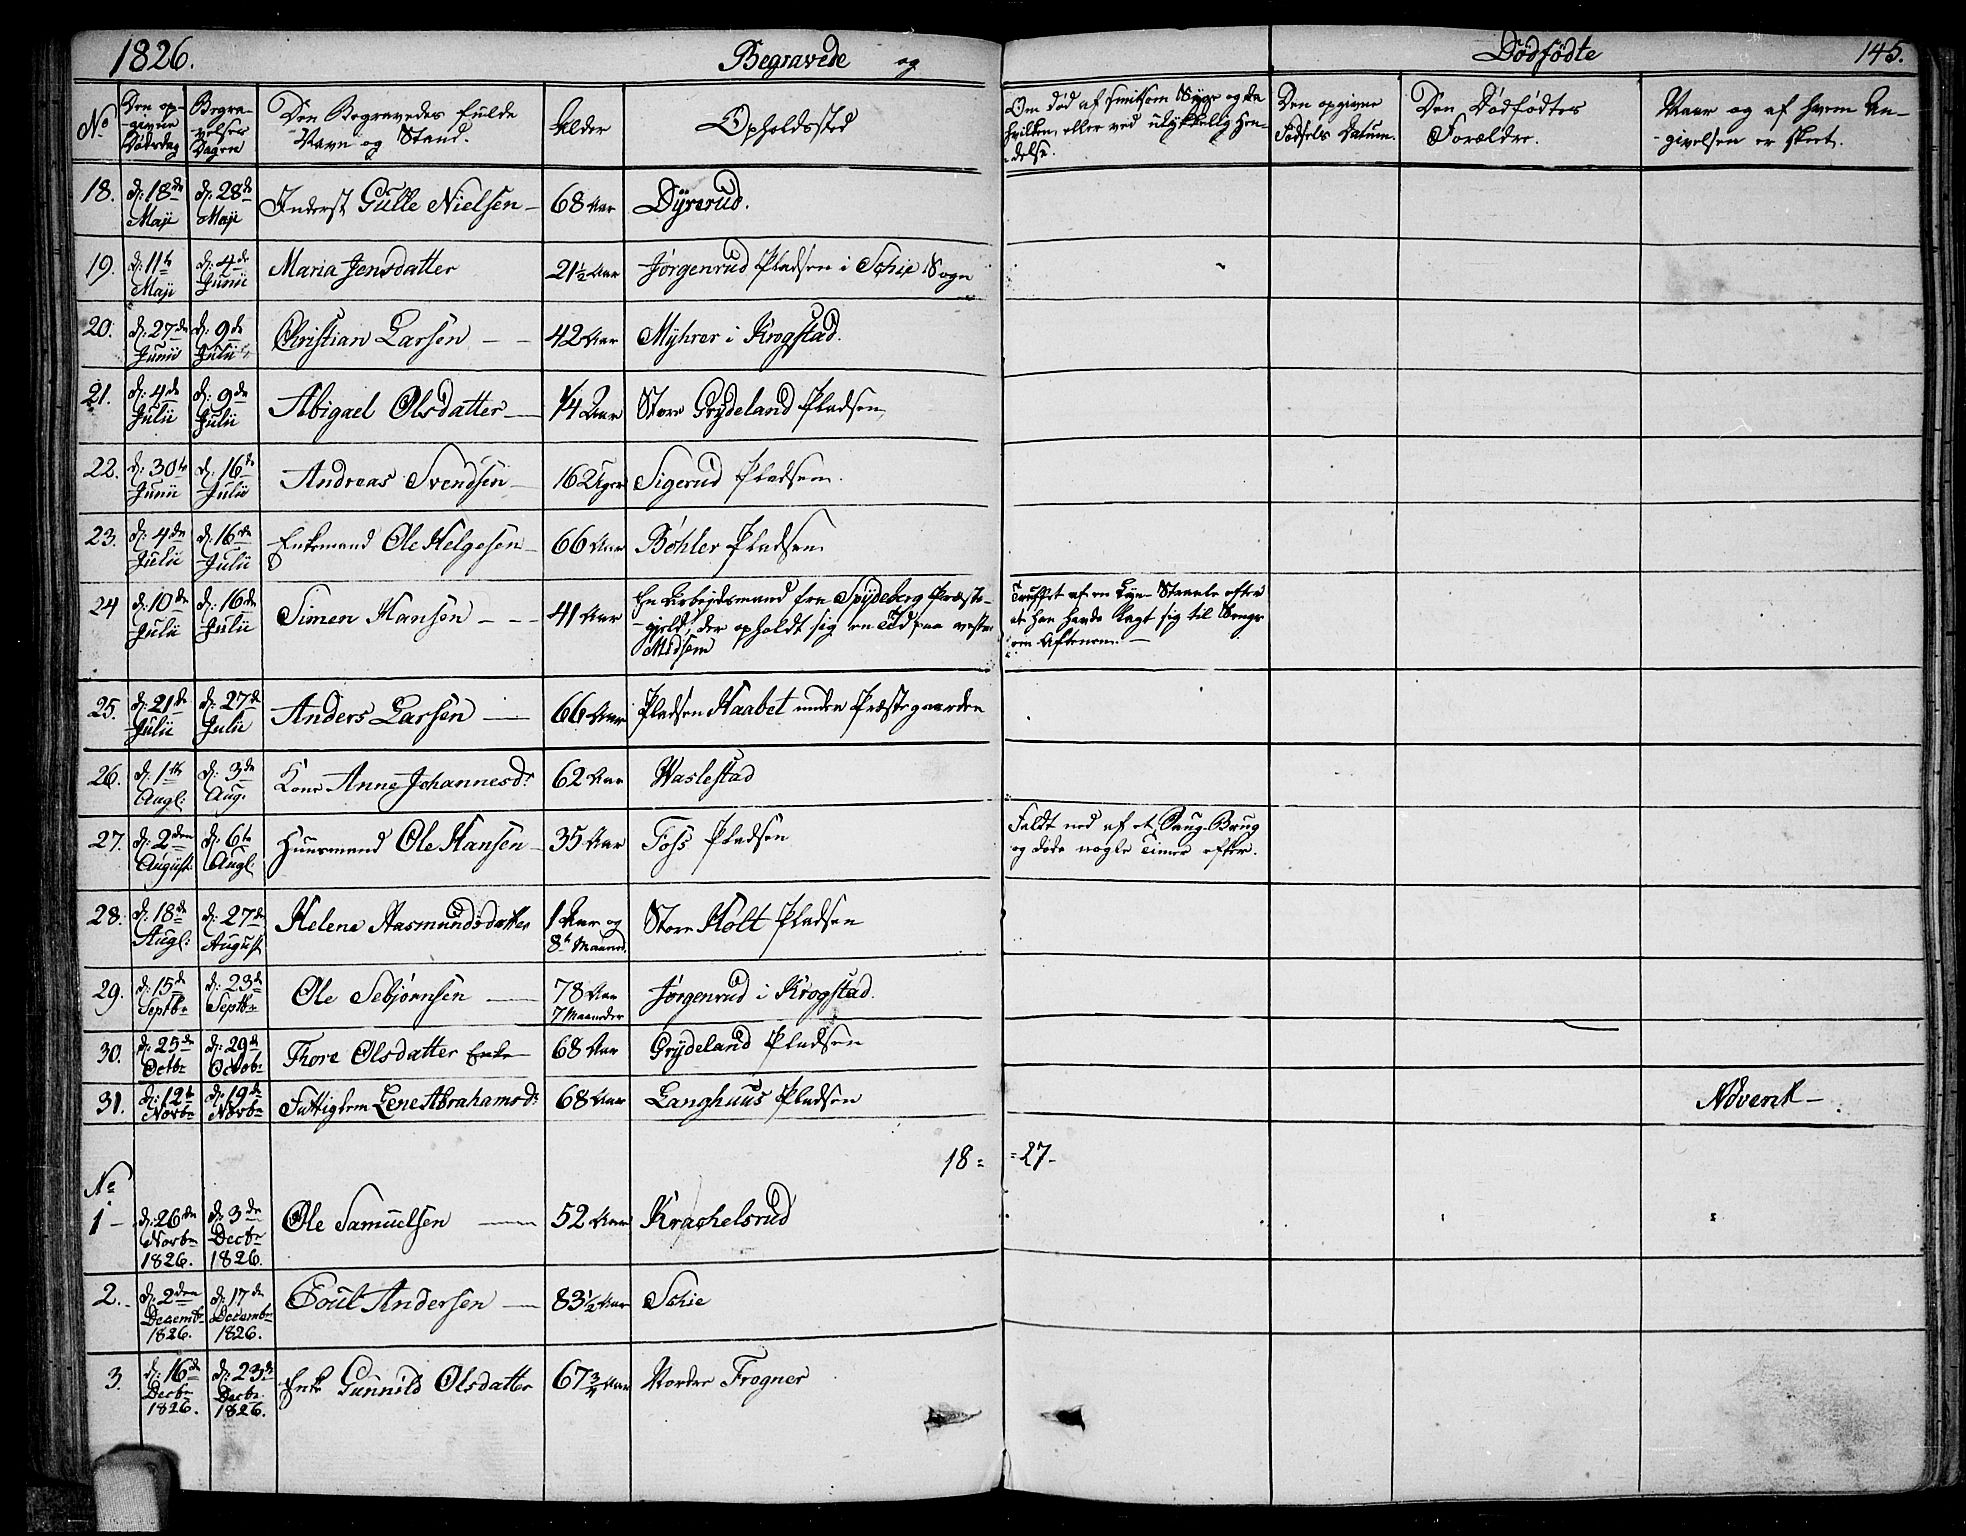 1826. Begravede og Dødfødte 145.
No
Den op-
givne
Dødsdag
Begra-
velses
Dagen
Den Begravedes fulde
Navn og Stand.
Alder
Opholdssted
Om død af smitsom Syge og da
hvilken, eller ved ulykkelig Hen-
delse.
Den opgivne
Fødsels Datum.
Den Dødfødtes
Forældre.
Naar og af hvem An-
givelsen er skeet.
18. d: 18de Maji d: 28de Maji Inderst Gulle Nielsen 68 Aar Dÿrerud.
19. d: 11te Maji d: 4de Junii Maria Jensdatter 21½ Aar Jørgenrud Pladsen i Schie Sogn
20. d: 27de Junii d: 9de Julii Christian Larsen 42 Aar Mÿhrer i Krogstad.
21. d: 4de Julii d: 9de Julii Abigael Olsdatter 14 Aar Store Grÿdeland Pladsen
22. d: 30te Junii d: 16de Julii Andreas Svendsen 16 Uger Sigerud Pladsen.
23. d: 4de Julii d: 16de Julii Enkemand Ole Helgesen 66 Aar Bøhler Pladsen
24 d: 10de Julii d: 16de Julii Simen Hansen 41 Aar En Arbejdsmand fra Spÿdeberg Præste-
gjeld, der opholdt sig en Tid paa vestre
Midsem
Truffet af en Lyn-Straale efter
at han havde lagt sig til Sengs
om Aftenen.
25. d: 21de Julii d: 27de Julii Anders Larsen 66 Aar Pladsen Haabet under Præstegaarden
26. d: 1ste Augl: d: 3de Aug. Kone Anne Johannesdr 62 Aar Waslestad
27. d: 2den August d: 6te Augl: Huusmand Ole Hansen 35 Aar Foss Pladsen Faldt ned af et Saug-Brug
og døde nogle Timer efter.
28. d: 18de Augl: d: 27de August Helene Rasmundsdatter 1 Aar og
8te Maaned. Store Holt Pladsen
29. d: 15de Septbr d: 23de Septbr Ole Sebjørnsen 78 Aar
7 Maaneder Jørgenrud i Krogstad.
30. d: 25de Octbr d: 29de Octobr Thore Olsdatter Enke 68 Aar Grÿdeland Pladsen
31. d: 12te Novbr d: 19de Novbr Fattiglem Lene Abrahamsdr 68 Aar Langhuus Pladsen Advent
18 = = 27
No
1 d: 26de Novbr 1826. d: 3de Decbr 1826. Ole Samuelsen 52 Aar Krachelsrud
2. d: 2den Decembr 1826. d: 17de Decembr 1826. Poul Andersen 83½ Aar Schie
3. d: 16de Decbr 1826. d: 23de Decbr 1826. Enke Gunnild Olsdatter 67¾ Aar Nordre Frogner